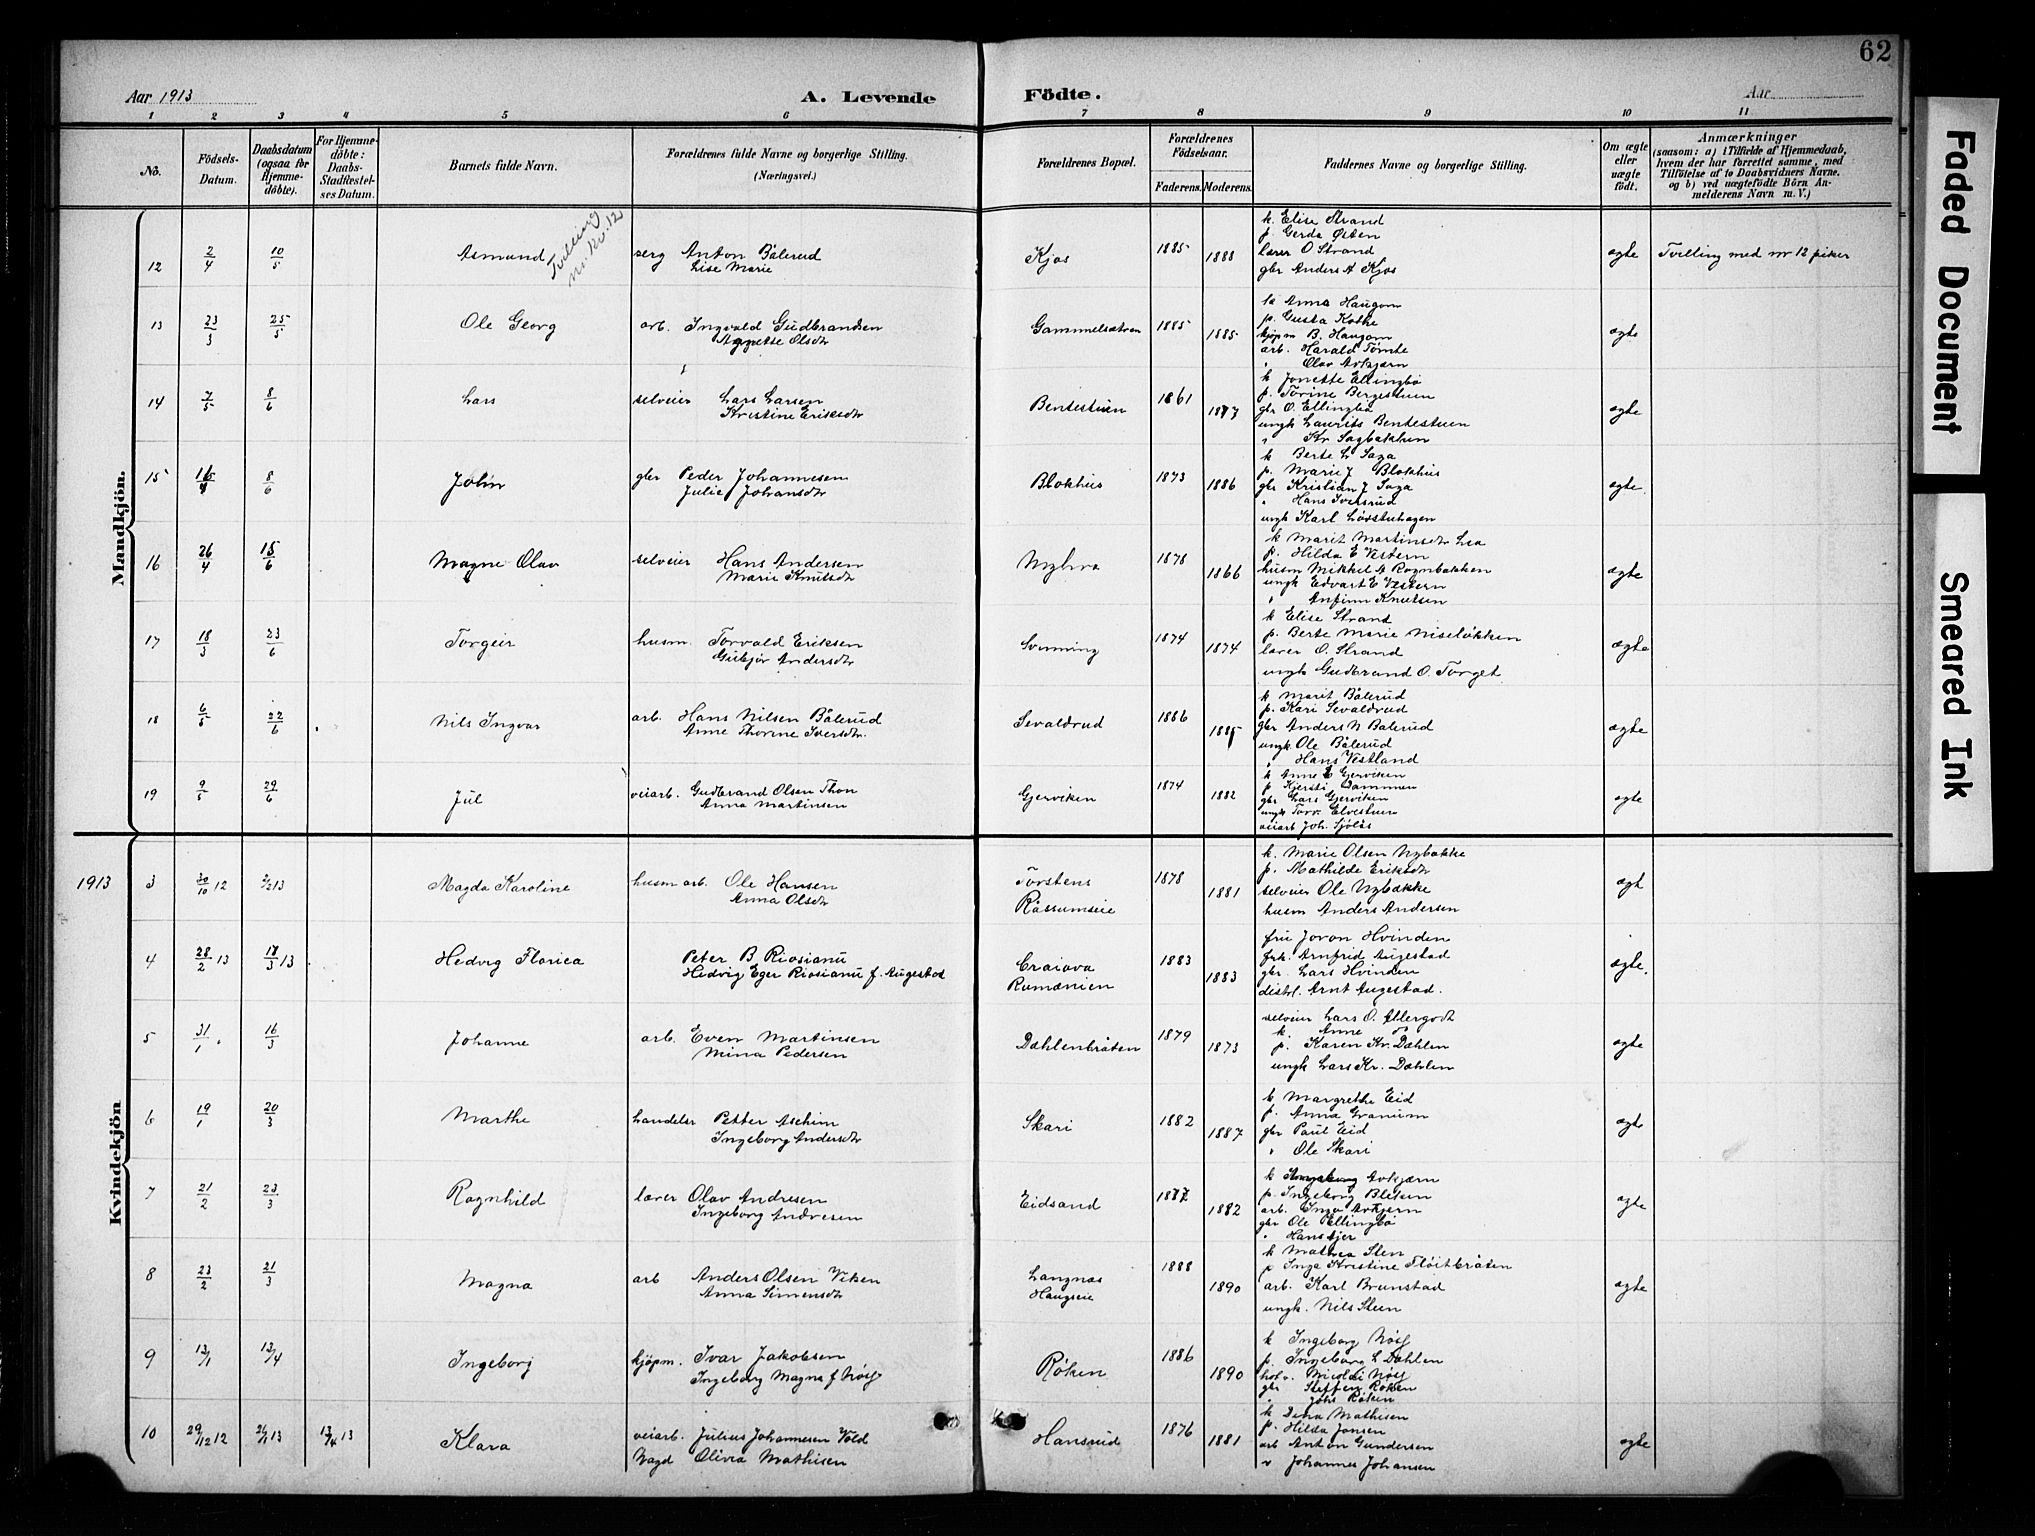 62
Aar 1913
A. Levende Födte.
Aar
1 2 3 4 5 6 7 8 9 10 11
No.
Födsels-Datum.
Daabsdatum (ogsaa for Hjemme-döbte).
For Hjemme-döbte: Daabs-Stadfestel-ses Datum.
Barnets fulde Navn.
Forældrenes fulde Navne og borgerlige Stilling. (Næringsvei.)
Forældrenes Bopæl.
Forældrenes Födselsaar.
Faderens. Moderens.
Faddernes Navne og borgerlige Stilling.
Om ægte eller uægte födt.
Anmærkninger
(saasom: a) i Tilfælde af Hjemmedaab, hvem der har forrettet samme, med Tilföielse af to Daabsvidners Navne. og b) ved uægtefödte Börn An-melderens Navn m. V.)
Mandkjön.
12 2/4 10/5 Asmund Tvilling
Anton Bålerud
Lise Marie
Kjos 1885 1888
k. Elise Strand
p. Gerda Østen
lærer O Strand
gbr Anders A Kjos
ægte Tvilling med nr 12 piker
13 23/3 25/5 Ole Georg
arb. Ingvald Gudbrandsen
Agnette Olsdtr
Gammelsætran 1885 1885
Anna Haugom
p. Gusta Kothe
kjøpm B. Haugom
arb. Harald Tømte
" Olav Avkjærn
ægte
14 7/5 8/6 Lars
selveier Lars Larsen
Kristine Eriksdtr
Bentestuen 1861 1877
k Jonette Ellingbø
p. Torine Bergestuen
gbr O. Ellingbø
ungk Laurits Bentestuen
" Kr Sagbakken
ægte
15 8/6 John
gbr Peder Johannesen
Julie Johansdtr
Blokhus 1873 1886
k Berte L Saga
p. Marie J Blokhus
gbr Kristian J Saga
" Hans Iversrud
ungk Karl Løvstuhagen
ægte.
16 26/4 15/6 Magne Olav
selveier Hans Andersen
Marie Knutsdtr
Myhra 1878 1866
k Marit Martinsdtr Lia
p. Hilda E Vestern
husm Mikkel A Rognbakken
ungk Edvart E Vestern
" Anfinn Knutsen
ægte
17 18/3 23/6 Torgeir
husm. Torvald Eriksen
Gubjør Andersdtr
Svenning 1874 1874
k Elise Strand
p. Berte Marie Niseløkken
lærer O. Strand
ungk Gudbrand O. Torget
ægte
18 6/5 22/6 Nils Ingvar
arb. Hans Nilsen Bålerud
Anne Thorine Iversdtr.
Sevaldrud 1886 1885
k Marit Bålerud
p. Kari Sevaldrud
gbr Anders N Bålerud
ungk Ole Bålerud
" Hans Vestland
ægte
19 9/5 29/6 Jul
veiarb. Gudbrand Olsen Thon
Anna Martinsen
Gjerviken 1874 1882
k Anne E Gjerviken
p Kjersti Dammen
gbr Lars Gjerviken
ungk Torv. Elvestuen
veiarb Joh. Sjølås
ægte
Kvindekjön
1913
3 30/10 12 2/2 13 Magda Karoline
husm arb. Ole Hansen
Anna Olsdtr
Torstens
Råssumseie
1878 1881
k. Marie Olsen Nybakke
p. Mathilde Eriksdtr
selveier Ole Nybakke
husm Anders Andersen
ægt
4 28/2 13 18/3 13 Hedvig Florica
Peter B Riosianu
Hedvig Eger Riosianu f. Augestad
Craiova
Rumænien
1883 1883
fru Joron Hvinden
frk. Arnfrid Augestad
gbr. Lars Hvinden
distrl. Arnt Augestad.
ægte.
5 31/1 16/3 Johanne
arb. Even Martinsen
Mina Pedersen
Dæhlenbråten 1879 1873
selveier Lars O. Allergodt
k Anne do
p. Karen Kr. Dæhlen
ungk Lars Kr. Dæhlen
ægte
6 19/1 20/3 Marthe
handelsr Petter Aschim
Ingeborg Andersdtr
Skari 1882 1887
k Margrethe Eid
p. Anna Granum
gbr Paul Eid
" Ole Skari
ægte
7 21/2 23/3 Ragnhild
lærer Olav Andresen
Ingeborg Andresen
Eidsand 1877 1882
k Ingeborg Avkjærn
p. Ingeborg Bleken
arb. Inga Avkjærn
gbr Ole Ellingbø
" Hans
ægte
8 23/2 21/3 Magna
arb Anders Olsen Viken
Anna Simensdtr
Langnas
Haugseie
1888 1890
k Mathea Sten
p Inga Kristine Fløitbråten
arb. Karl Brunstad
ungk. Nils Steen
ægte
9 12/1 12/4 Ingeborg
kjøpm. Ivar Jakobsen
Ingeborg Magna f Nøss
Røken 1886 1890
k Ingeborg Nøss
p. Ingeborg L Dæhlen
Nicolai Nøss
gbr Steffen Røken
" Johs Røken
10 29/12 12 26/1 13 13/4 13 Klara
veiarb. Julius Johannesen Vold
Olivia Mathisen
Hansrud 1876 1881
k Dina Mathisen
p. Hilda Jonsen
arb Anton Gundersen
" Johannes Johansen
ægte
Faded Document
Smeared Ink